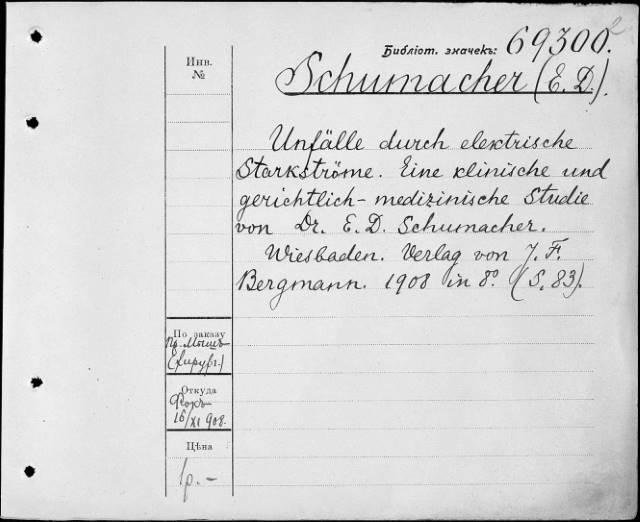 Библіот. значекъ: 69300.
Инв.
№
Schumacher (E. D.).
Unfälle durch elektrische
Starkströme. Eine klinische und
gerichtlich-medizinische Studie
von Dr. E. D. Schumacher.
Wiesbaden. Verlag von J. F.
Bergmann. 1908 in 8º. (S. 83).
По заказу
пр. Мышъ
(хирург.)
Откуда
Фокъ
16/XI 908.
Цѣна
1р. -